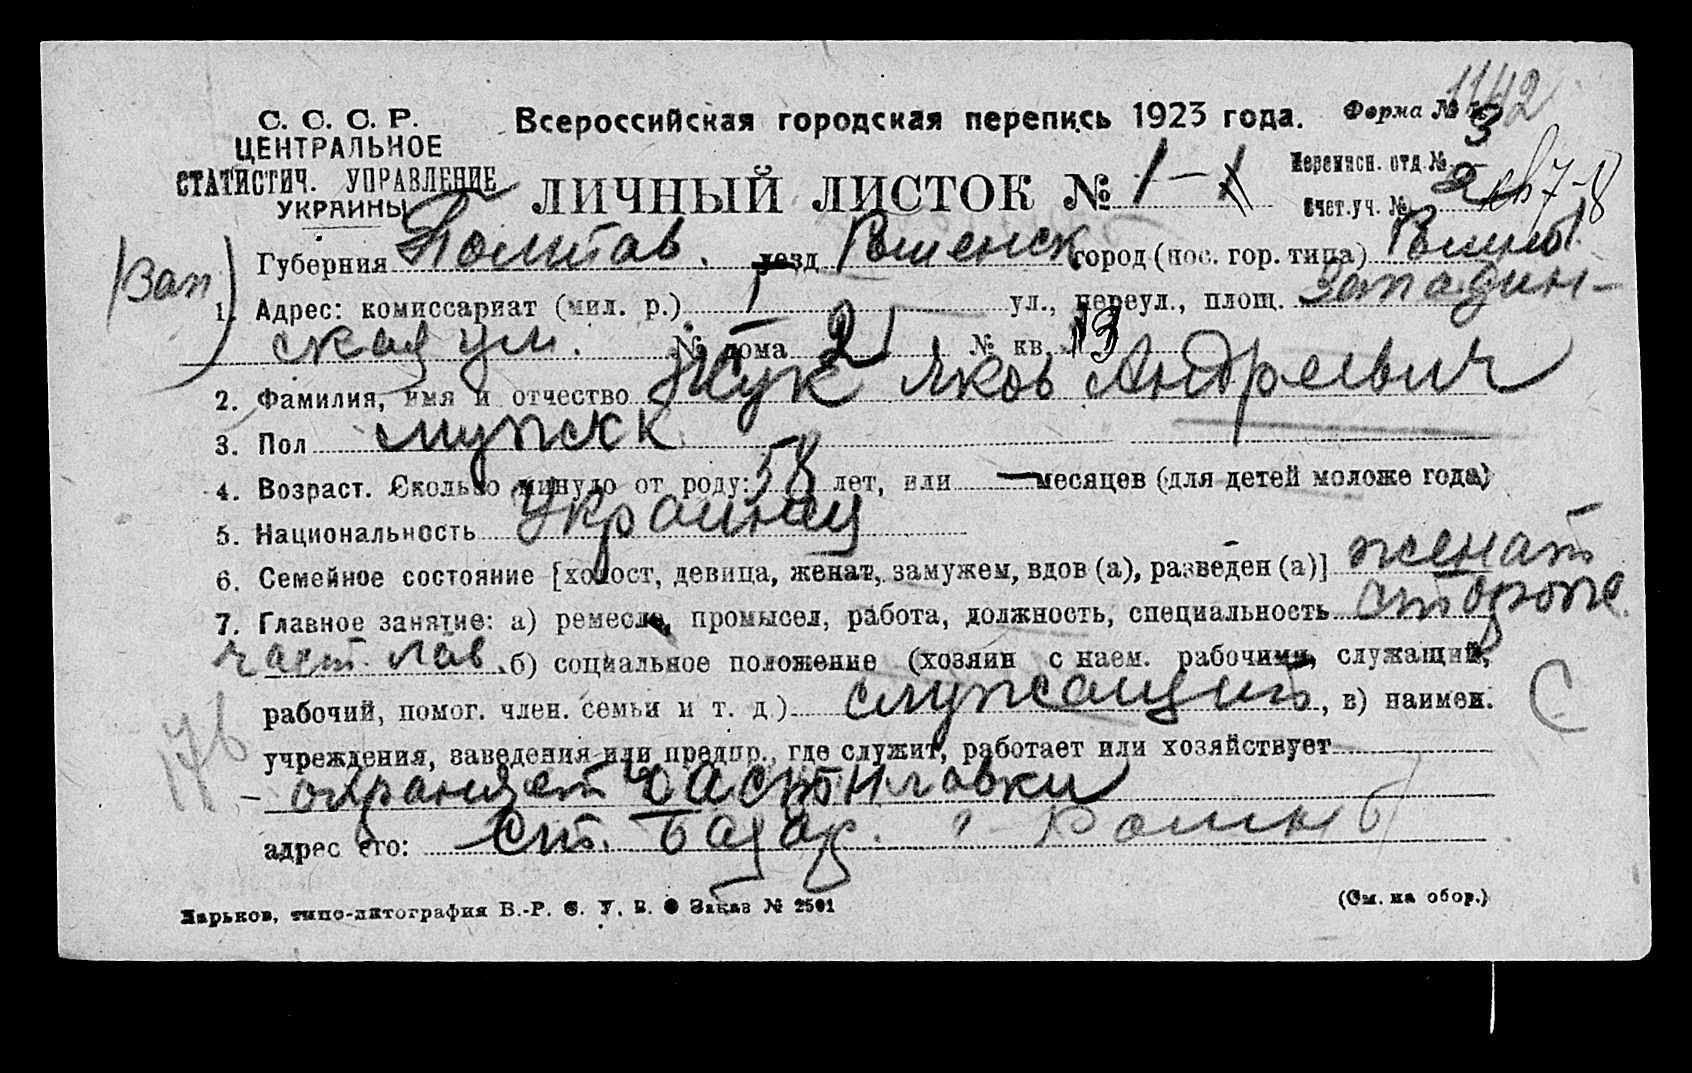 1142
С. С. С. Р. Всероссийская городская перепись 1923 года. Форма № 3
ЦЕНТРАЛЬНОЕ
СТАТИСТИЧ. УПРАВЛЕНИЕ
УКРАИНЫ
ЛИЧНЫЙ ЛИСТОК № 1 – 1
Переписн. отд. №
Счет. уч. № 2
Губерния Полтав. уезд Роменск город (пос. гор. типа) Ромны
(Зап)
1. Адрес: комиссариат (мил. р.) 1 ул., переул., площ. Западин-
ская ул. № дома 21 № кв. 13
2. Фамилия, имя и отчество Жук Яков Андреевич
3. Пол мужск
4. Возраст. Сколько минуло от роду: 58 лет, или — месяцев (для детей моложе года)
5. Национальность Украинец
6. Семейное состояние [холост, девица, женат, замужем, вдов (а), разведен (а)] женат
7. Главное занятие: а) ремесло, промысел, работа, должность, специальность сторож
част. лав. б) социальное положение (хозяин с наем. рабочими, служащий,
рабочий, помог. член. семьи и т. д.) служащий, в) наимен.
С
176
учреждения, заведения или предпр., где служит, работает или хозяйствует
– охраняет частн лавки
адрес его: ст. базар. Ромны
Харьков, типо-литография В.-Р. С. У. В. Заказ № 2501 (См. на обор.)